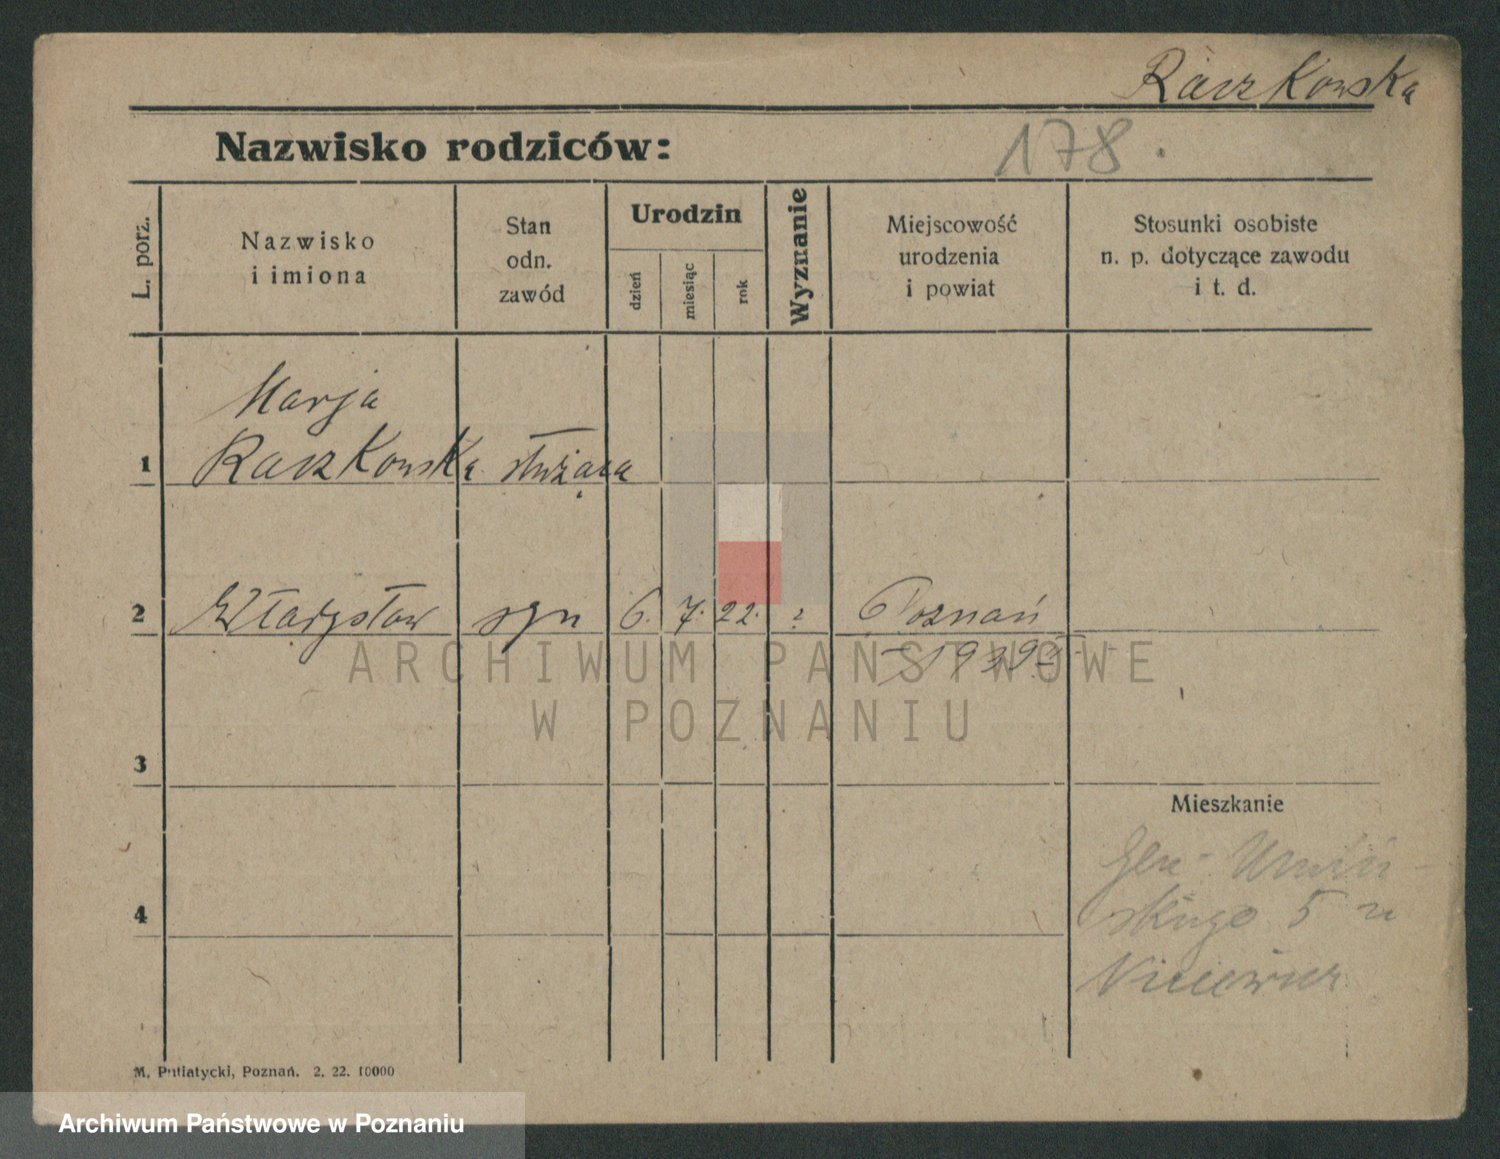 Raczkowska
Nazwisko rodziców:
178.
L. porz.
Nazwisko
i imiona
Stan
odn.
zawód
Urodzin
dzień
miesiąc
rok
Wyznanie
Miejscowość
urodzenia
i powiat
Stosunki osobiste
n. p. dotyczące zawodu
i t. d.
Marja
1 Raczkowska służąca
2 Władysław syn 6. 7. 22. Poznań
ARCHIWUM PAŃSTWOWE
W POZNANIU
3
Mieszkanie
Gen. Umiń-
4 skiego 5 u
M. Putiatycki, Poznań. 2. 22. 10000
Archiwum Państwowe w Poznaniu